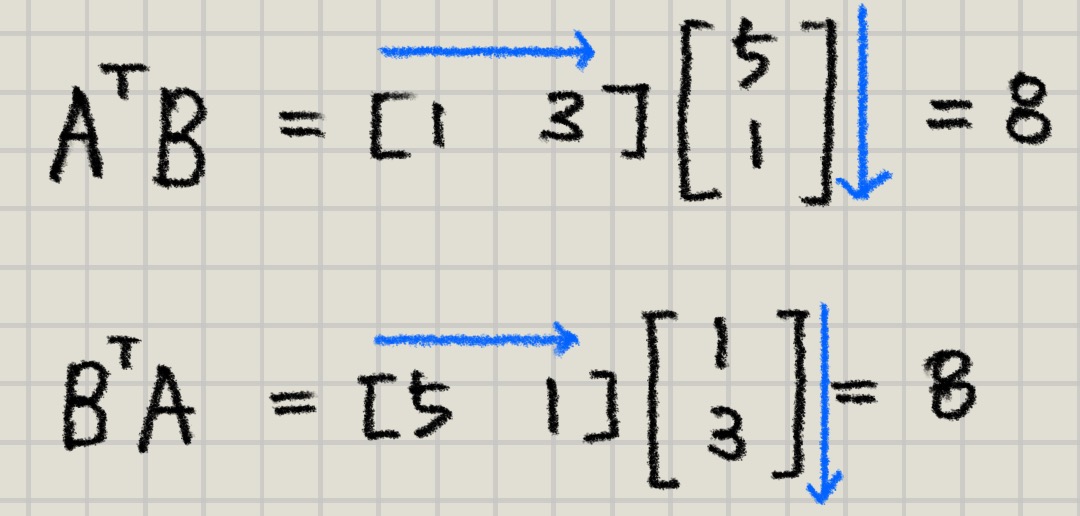 AᵀB = [1 3] [5 1] = 8
BᵀA = [5 1] [1 3] = 8